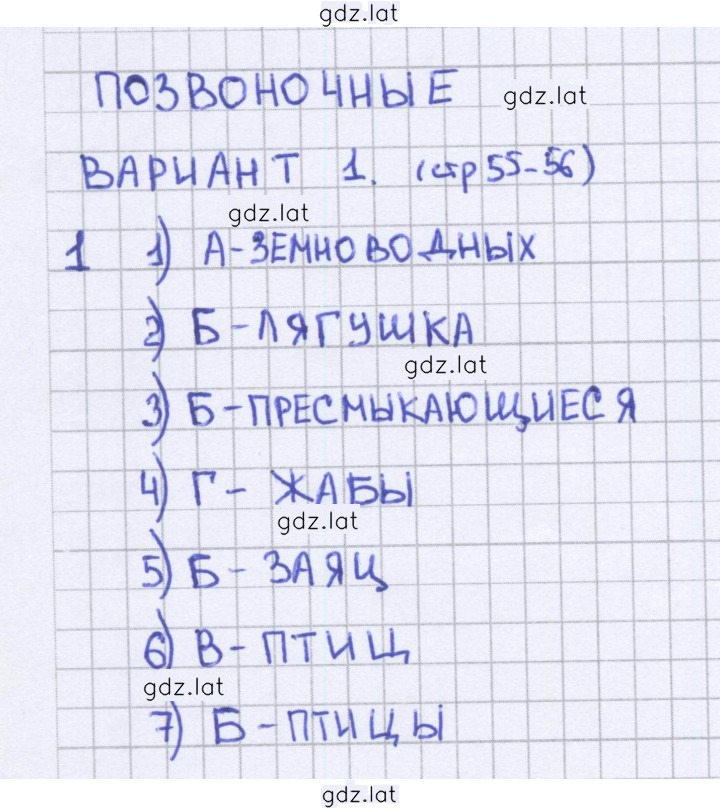 gdz.lat
ПОЗВОНОЧНЫЕ
gdz.lat
ВАРИАНТ 1. (стр 55-56)
gdz.lat
1 1) А-ЗЕМНОВОДНЫХ
2) Б-ЛЯГУШКА
gdz.lat
3) Б-ПРЕСМЫКАЮЩИЕСЯ
4) Г- ЖАБЫ
gdz.lat
5) Б- ЗАЯЦ
6) В-ПТИЦ
gdz.lat
7) Б-ПТИЦЫ
gdz.lat